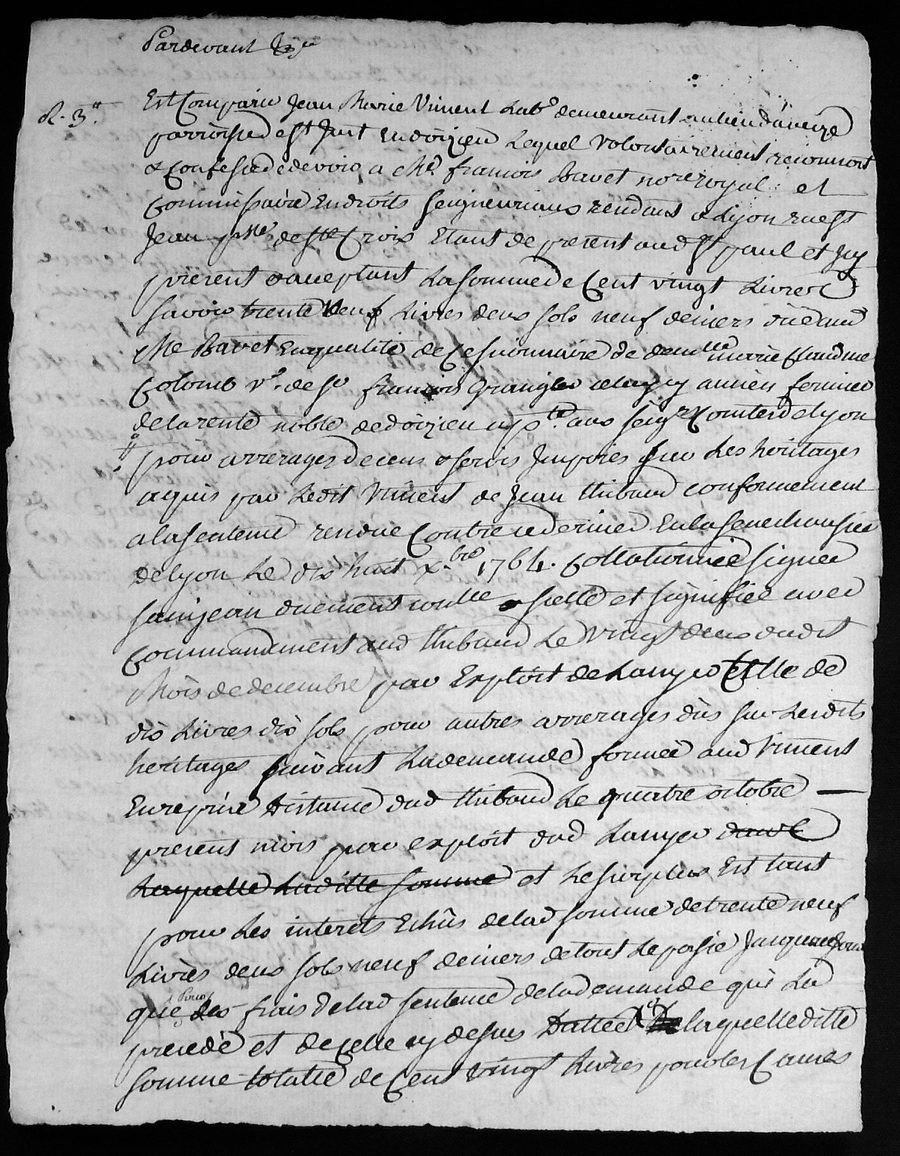 Pardevant &c
R. 3ᵗᵗ.
Est Comparu Jean Marie Vincent Labʳ demeurant au lieu d'aveize
parroisse de St Just en doizieu Lequel volontairement reconnoit
& Confesse de devoir a Me francois Bavet nore royal et
Commissaire en droits seigneuriaux residant a Lyon rue St
Jean psse de Ste Croix Etant de present aud St paul et Icy
present & acceptant La somme de Cent vingt Livres
savoir trente neuf Livres deux sols neuf deniers düe aud
Me Bavet En qualité de Cessionnaire de demlle marie Claudine
Colomb vᵉ. de Sr francois Grangier ancien fermier
de la rente noble de doizieu appte aux seigrs Comtes de Lyon
pour arrerages de cens & servis Imposés sur Les héritages
aquis par Ledit Vincent de Jean thibaud conformement
a la sentence rendue Contre ce dernier En la senechaussée
de Lyon Le dix huit Xbre 1764. Collationnée signée
sanjean duement scellée et signifiée avec
Commandement aud thibaud Le vingt deux dudit
Mois de decembre par Exploit de Lanyer Celle de
dix Livres dix sols pour autres arrerages dûs sur Lesdits
héritages suivant La demande formée aud Vincent
En reprise D'instance dud thibaud Le quatre octobre
present mois par exploit dud Lanyer
Laquelle Laditte somme et Le surplus Est tant
pour Les interets Echûs de lad somme de trente neuf
Livres deux sols neuf deniers de tout Le passé Jusqu'a ce Jour
que pour des frais de lad sentence de la demande qui La
precedé et de celle cy dessus Dattée laquelle ditte
somme totalle de Cent vingt Livres pour les Causes